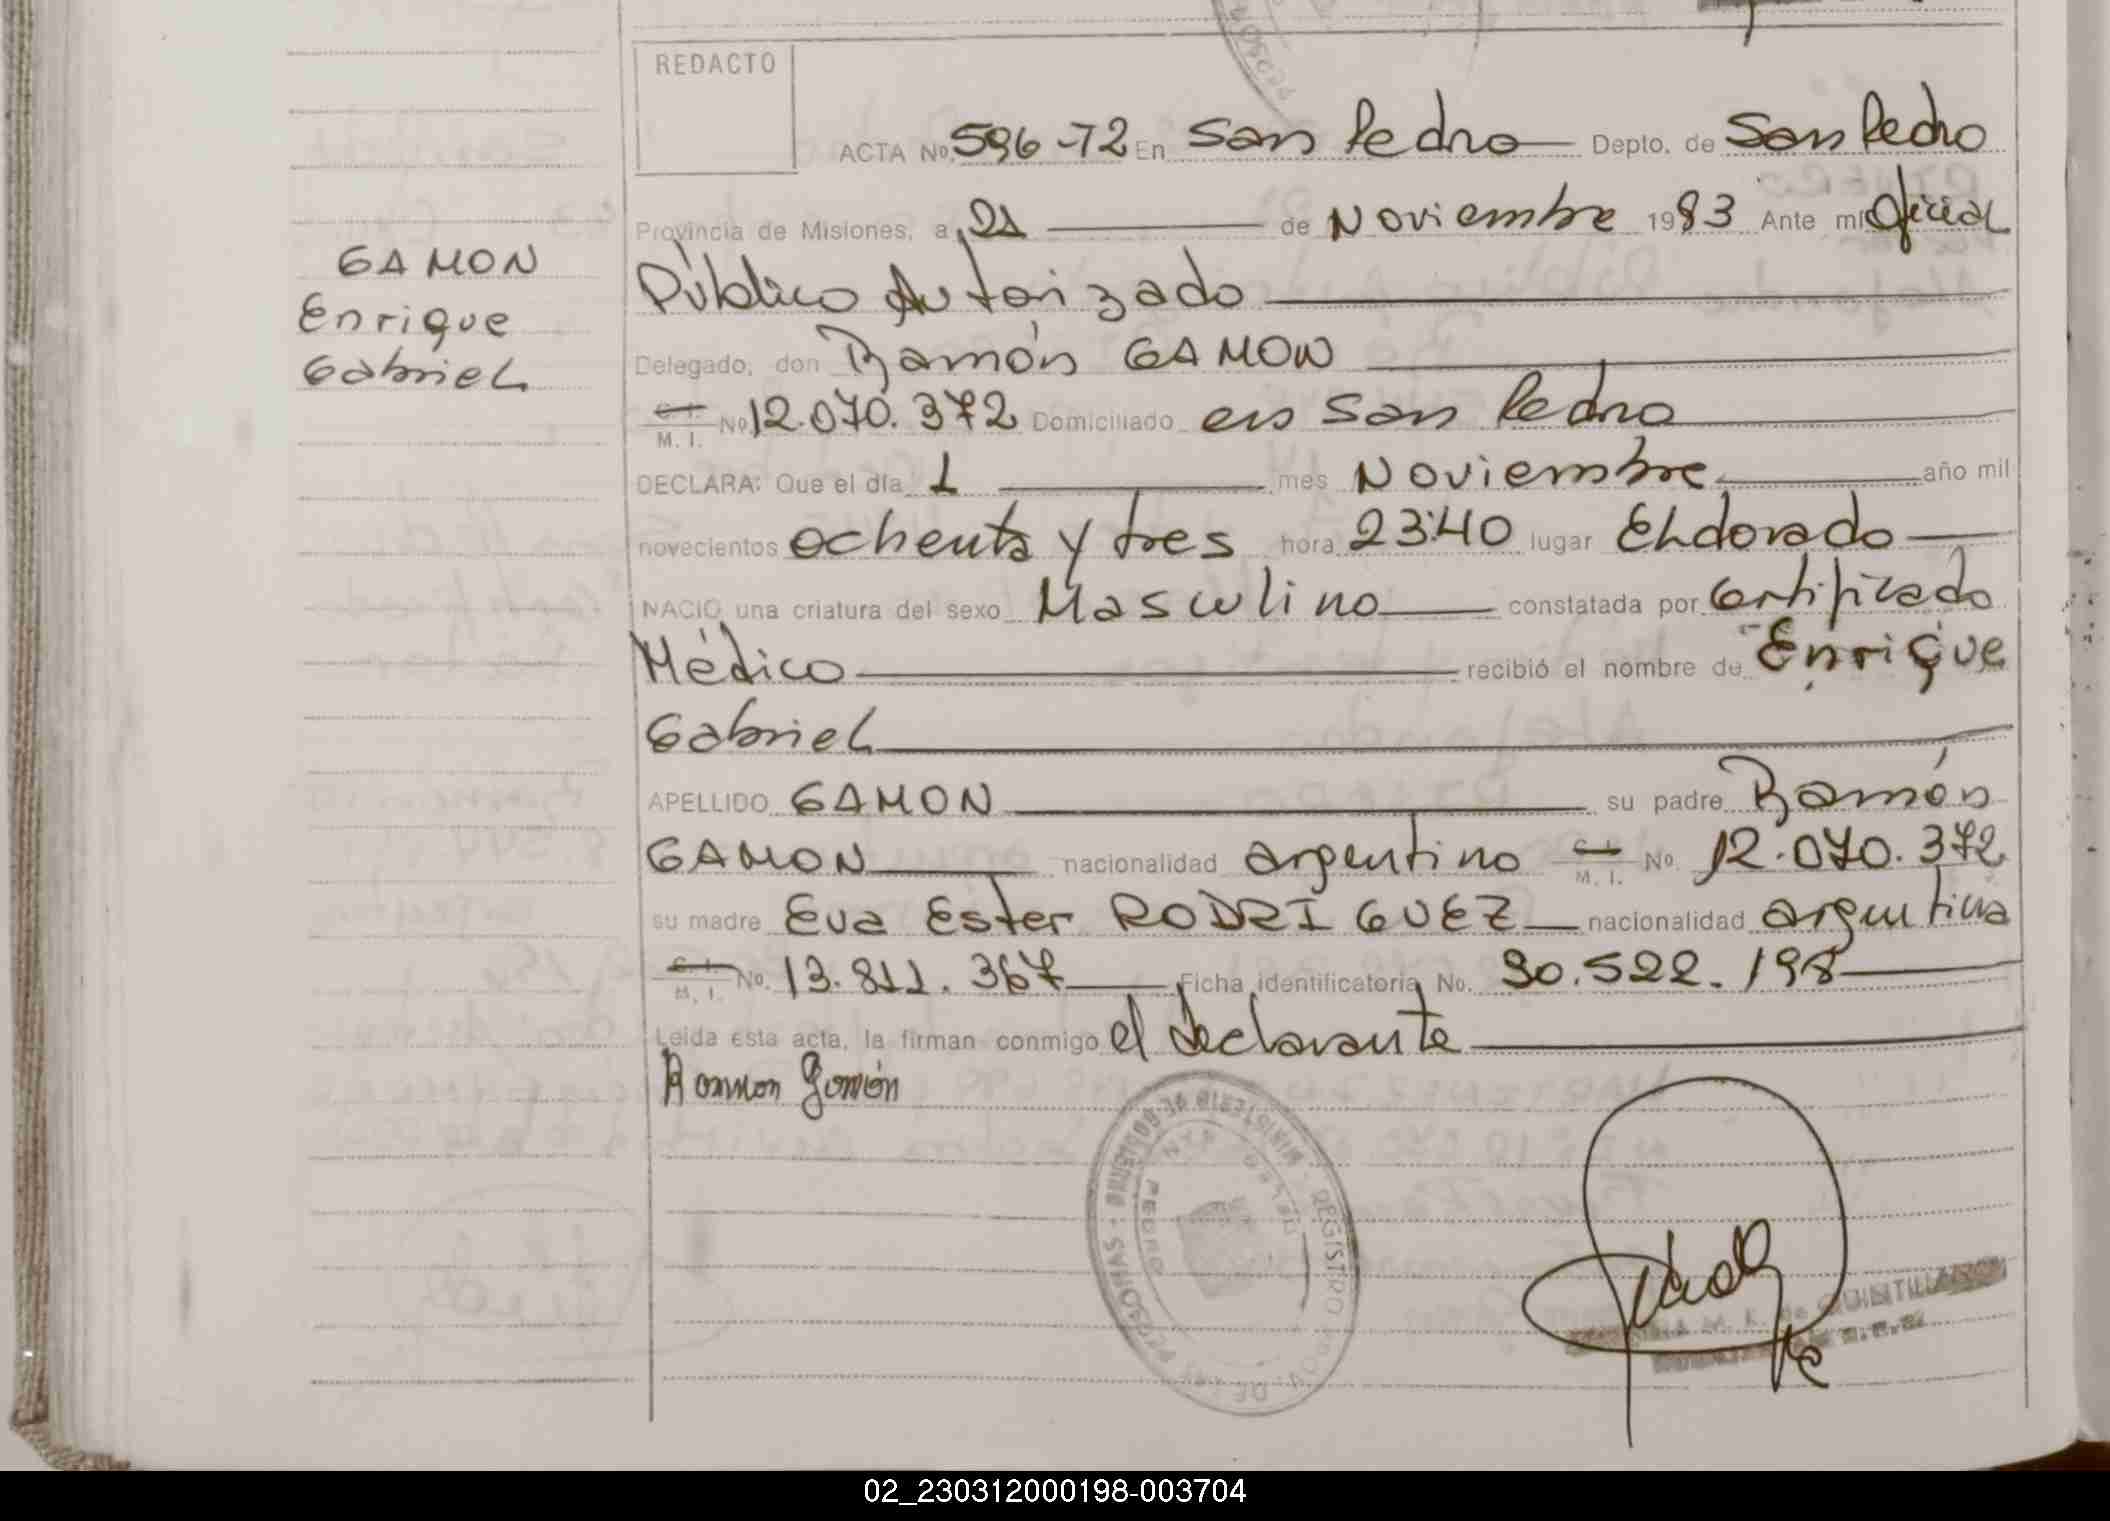 REDACTO
ACTA No. 596-72 En San Pedro Depto. de San Pedro
Provincia de Misiones, a 21 de Noviembre 1983 Ante mí Oficial
Público Autorizado
Delegado, don Ramón GAMON
C. I. M. I. No. 12.070.372 Domiciliado en San Pedro
DECLARA: Que el día 1 mes Noviembre año mil
novecientos ochenta y tres hora 23:40 lugar Eldorado
NACIO una criatura del sexo Masculino constatada por Certificado
Médico recibió el nombre de Enrique
Gabriel
APELLIDO GAMON su padre Ramón
GAMON nacionalidad argentino C. I. M. I. No. 12.070.372
su madre Eva Ester RODRIGUEZ nacionalidad argentina
C. I. M. I. No. 13.811.367 Ficha identificatoria No. 30.522.198
Leída esta acta, la firman conmigo el declarante
Ramon Gamón
GAMON
Enrique
Gabriel
REGISTRO PROV. DE LAS PERSONAS - MINISTERIO DE GOBIERNO
PEDRO
de QUINTILLAN
02_230312000198-003704